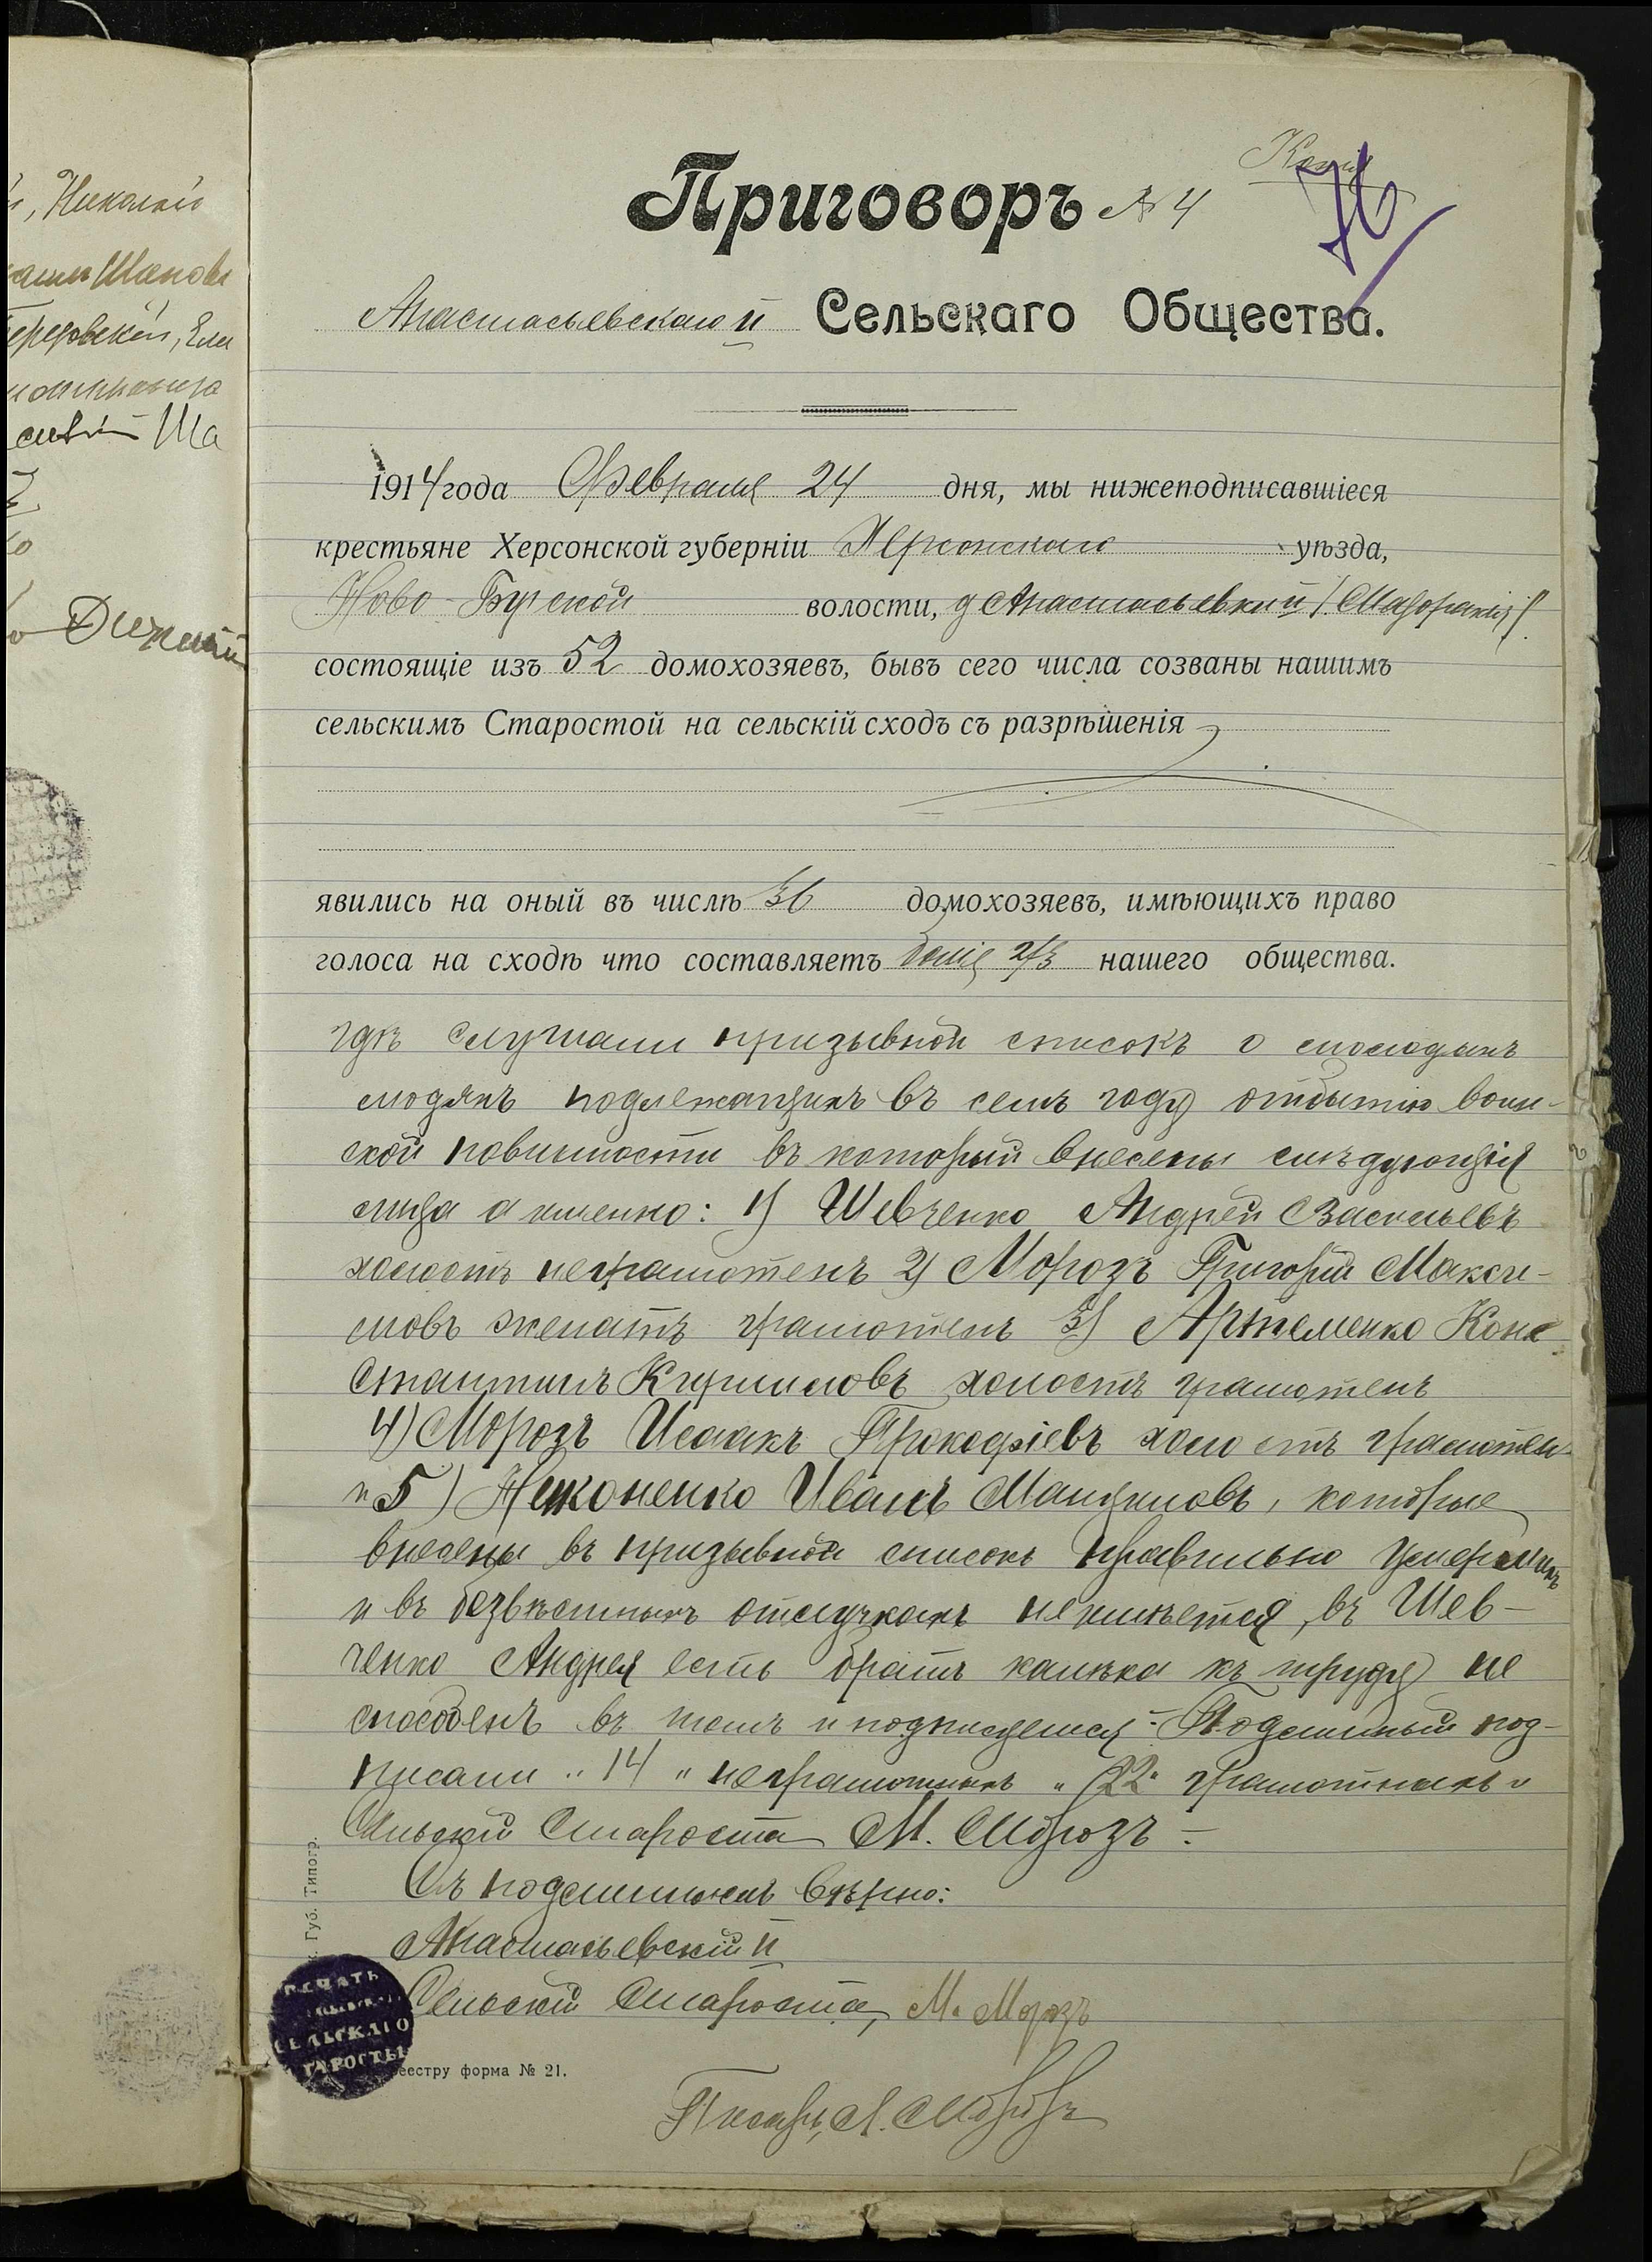 й, Николай
Шапова
Ша
Копія
76
Приговоръ № 4
Анастасьевскаго II Сельскаго Общества.
1914 года Февраля 24 дня, мы нижеподписавшіеся
крестьяне Херсонской губерніи Херсонскаго уѣзда,
Ново-Бугской волости, д Анастасьевкий II
состоящіе изъ 52 домохозяевъ, бывъ сего числа созваны нашимъ
сельскимъ Старостой на сельскій сходъ съ разрѣшенія
явились на оный въ числѣ 36 домохозяевъ, имѣющихъ право
голоса на сходѣ что составляетъ болѣе 2/3 нашего общества.
гдѣ слушали призывной списокъ о молодыхъ
людяхъ подлежащихъ въ семъ году отбытію воин-
ской повинности въ который внесены слѣдующія
лица а именно: 1) Шевченко Андрей Васильевъ
холостъ неграмотенъ 2) Морозъ Григорій Макси-
мовъ женатъ грамотенъ 3) Артеменко Конс
стантинъ Кирилловъ холостъ грамотенъ
4) Морозъ Исаакъ Прокофіевъ холостъ грамотен
и 5) Иванъ которые
внесены въ призывной списокъ правильно умершихъ
и въ безвѣстныхъ отлучкахъ неимѣется, въ Шев-
ченко Андрея есть братъ калѣка къ труду не
способенъ въ томъ и подписуемся - Подлинный под-
писали "14" неграмотныхъ "22" грамотныхъ и
Сельскій Староста М. Морозъ -
Съ подлиннымъ вѣрно:
Анастасьевскій II
Сельскій Староста, М. Морозъ
Губ. Типогр.
ПЕЧАТЬ
СЕЛЬСКАГО
СТАРОСТЫ
реестру форма № 21.
Писарь, Морозъ